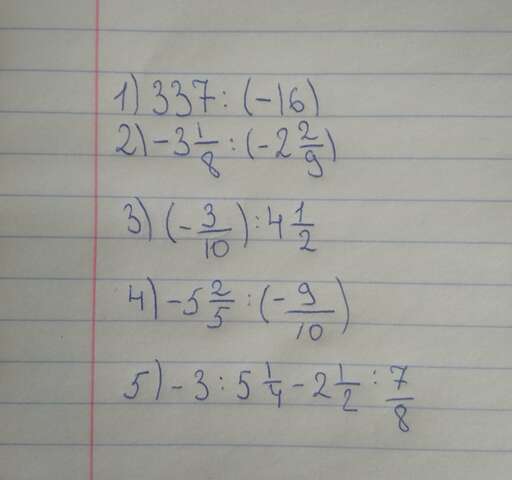 1) 337 : (-16)
2) -3 1/8 : (-2 2/9)
3) (-3/10) : 4 1/2
4) -5 2/5 : (-9/10)
5) -3 : 5 1/4 - 2 1/2 : 7/8